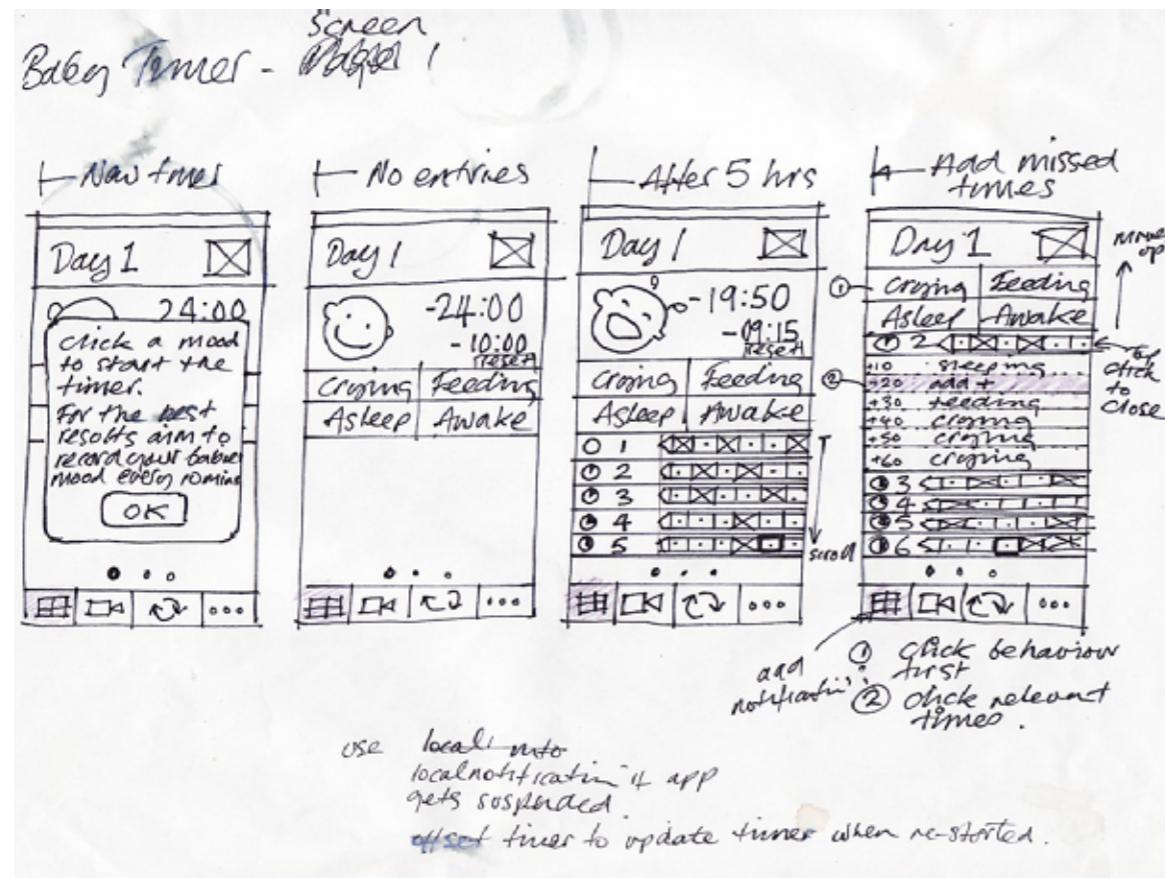 Screen
Baby Timer - 1
New timer
Day 1
24:00
Click a mood
to start the
timer.
For the best
results aim to
record your babies
mood every 10 mins
OK
No entries
Day 1
-24:00
-10:00
reset
Crying Feeding
Asleep Awake
After 5 hrs
Day 1
-19:50
-09:15
reset
Crying Feeding
Asleep Awake
1
2
3
4
5
scroll
Add missed
times
Day 1
move
up
1 Crying Feeding
Asleep Awake
2
by
click
to
close
+10 sleeping
2 +20 add +
+30 feeding
+40 crying
+50 crying
+60 crying
3
4
5
6
add
notification
1 click behaviour
first
2 click relevant
times.
use local
localnotification if app
gets suspended.
offset timer to update timer when re-started.